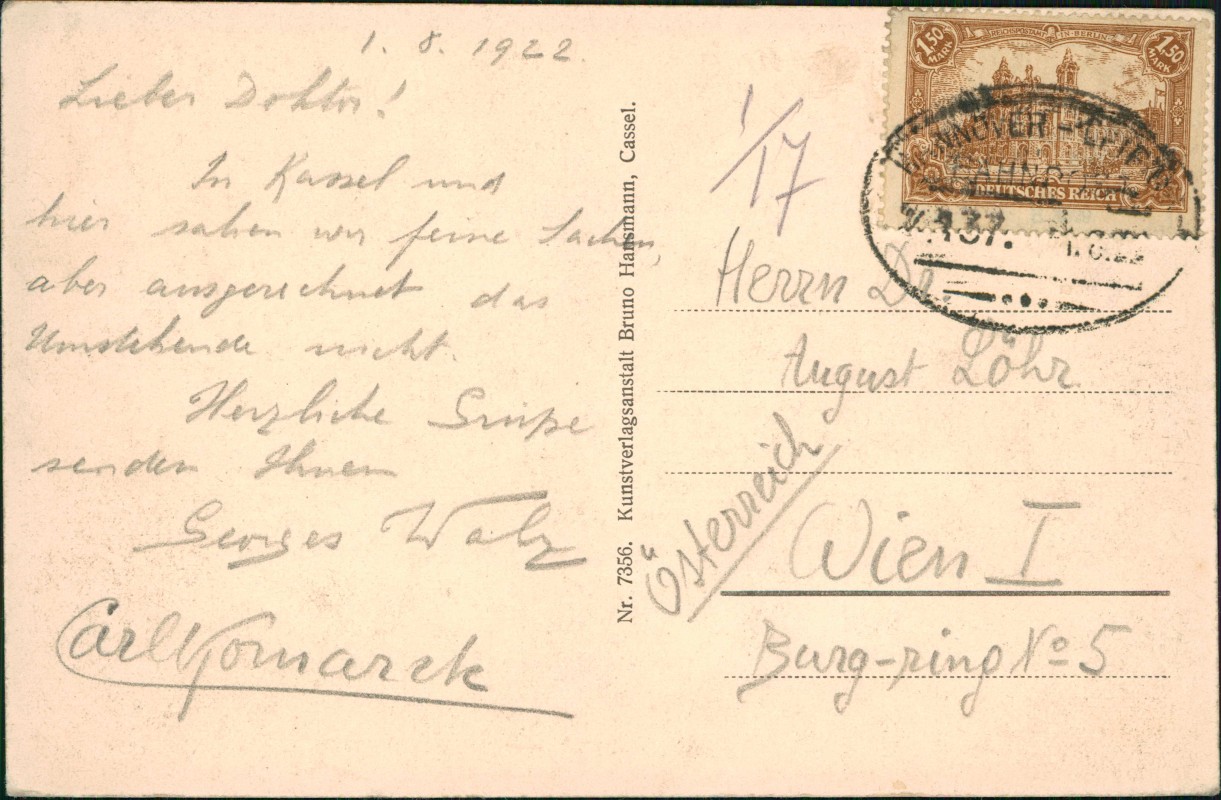 1. 8. 1922.
Lieber Doktor!
In Kassel und
hier sahen wir feine Sachen,
aber ausgerechnet das
Umstehende nicht.
Herzliche Grüße
senden Ihnen
Georges
Carl
Nr. 7356. Kunstverlagsanstalt Bruno Hansmann, Cassel.
1/17
1,50 MARK
REICHSPOSTAMT IN BERLIN
1,50 MARK
DEUTSCHES REICH
HANNOVER -
BAHNP
137.
1.8.22
Herrn Dr.
August Löhr
Österreich
Wien I
Burg-ring No 5